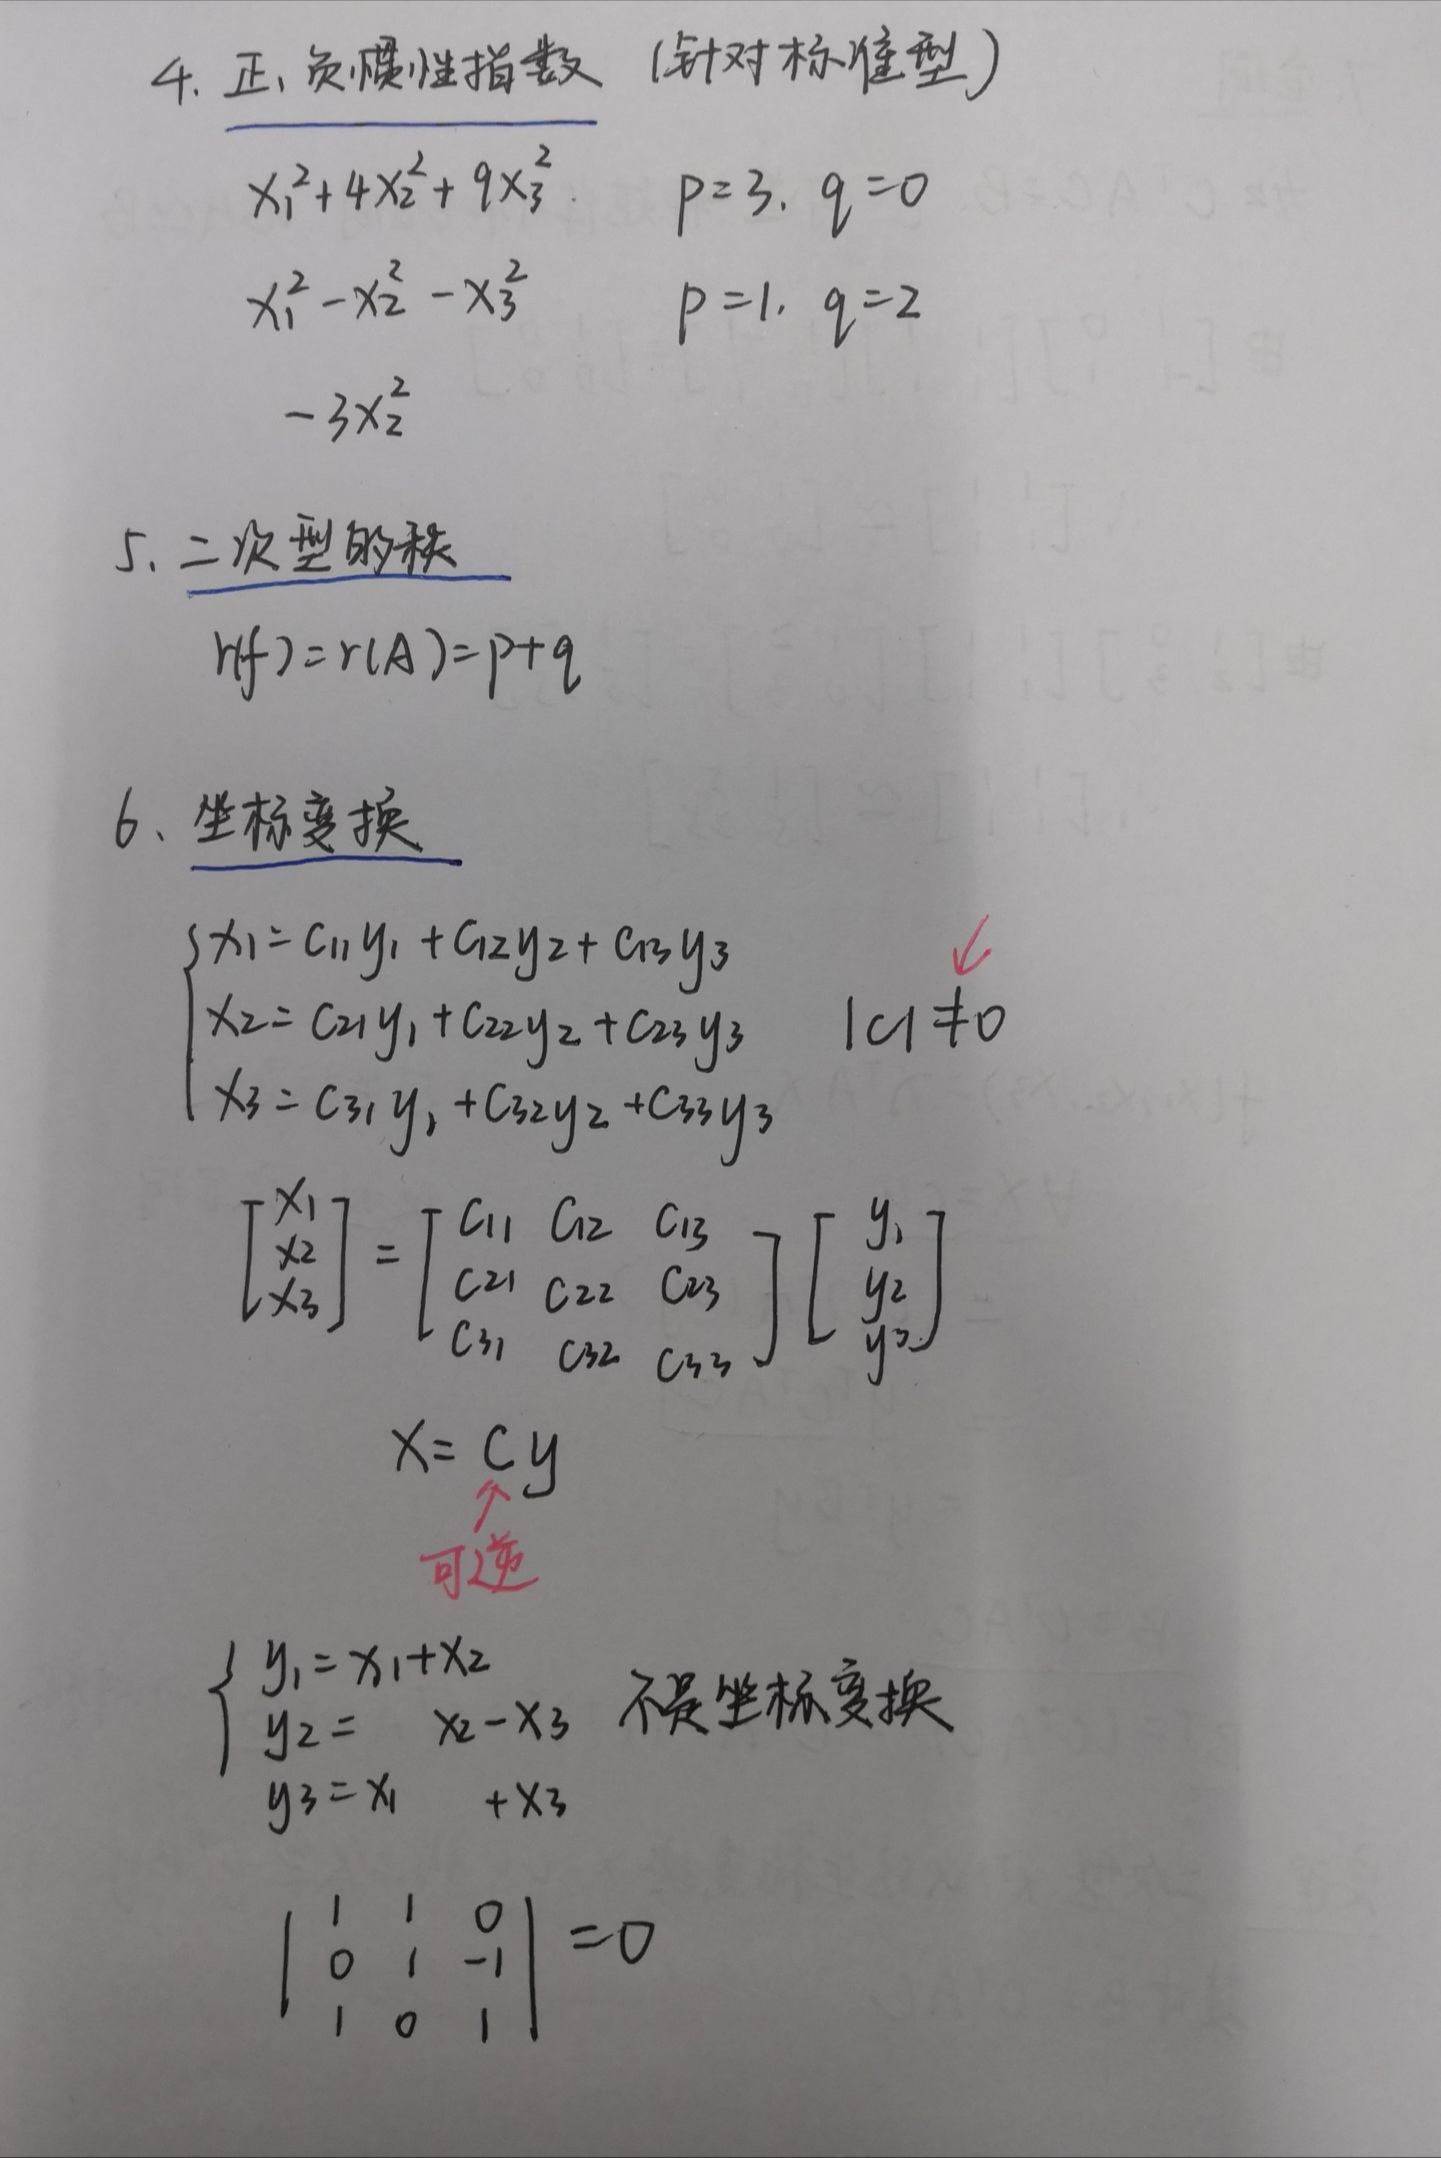 4. 正、负惯性指数 (针对标准型)
x₁²+4x₂²+9x₃² p=3. q=0
x₁²-x₂²-x₃² p=1. q=2
-3x₂²
5. 二次型的秩
r(f)=r(A)=p+q
6、坐标变换
x₁=c₁₁y₁+c₁₂y₂+c₁₃y₃
x₂=c₂₁y₁+c₂₂y₂+c₂₃y₃ |C|≠0
x₃=c₃₁y₁+c₃₂y₂+c₃₃y₃
[x₁ x₂ x₃] = [c₁₁ c₁₂ c₁₃ c₂₁ c₂₂ c₂₃ c₃₁ c₃₂ c₃₃] [y₁ y₂ y₃]
x=Cy
可逆
y₁=x₁+x₂
y₂= x₂-x₃ 不是坐标变换
y₃=x₁ +x₃
1 1 0
0 1 -1 =0
1 0 1